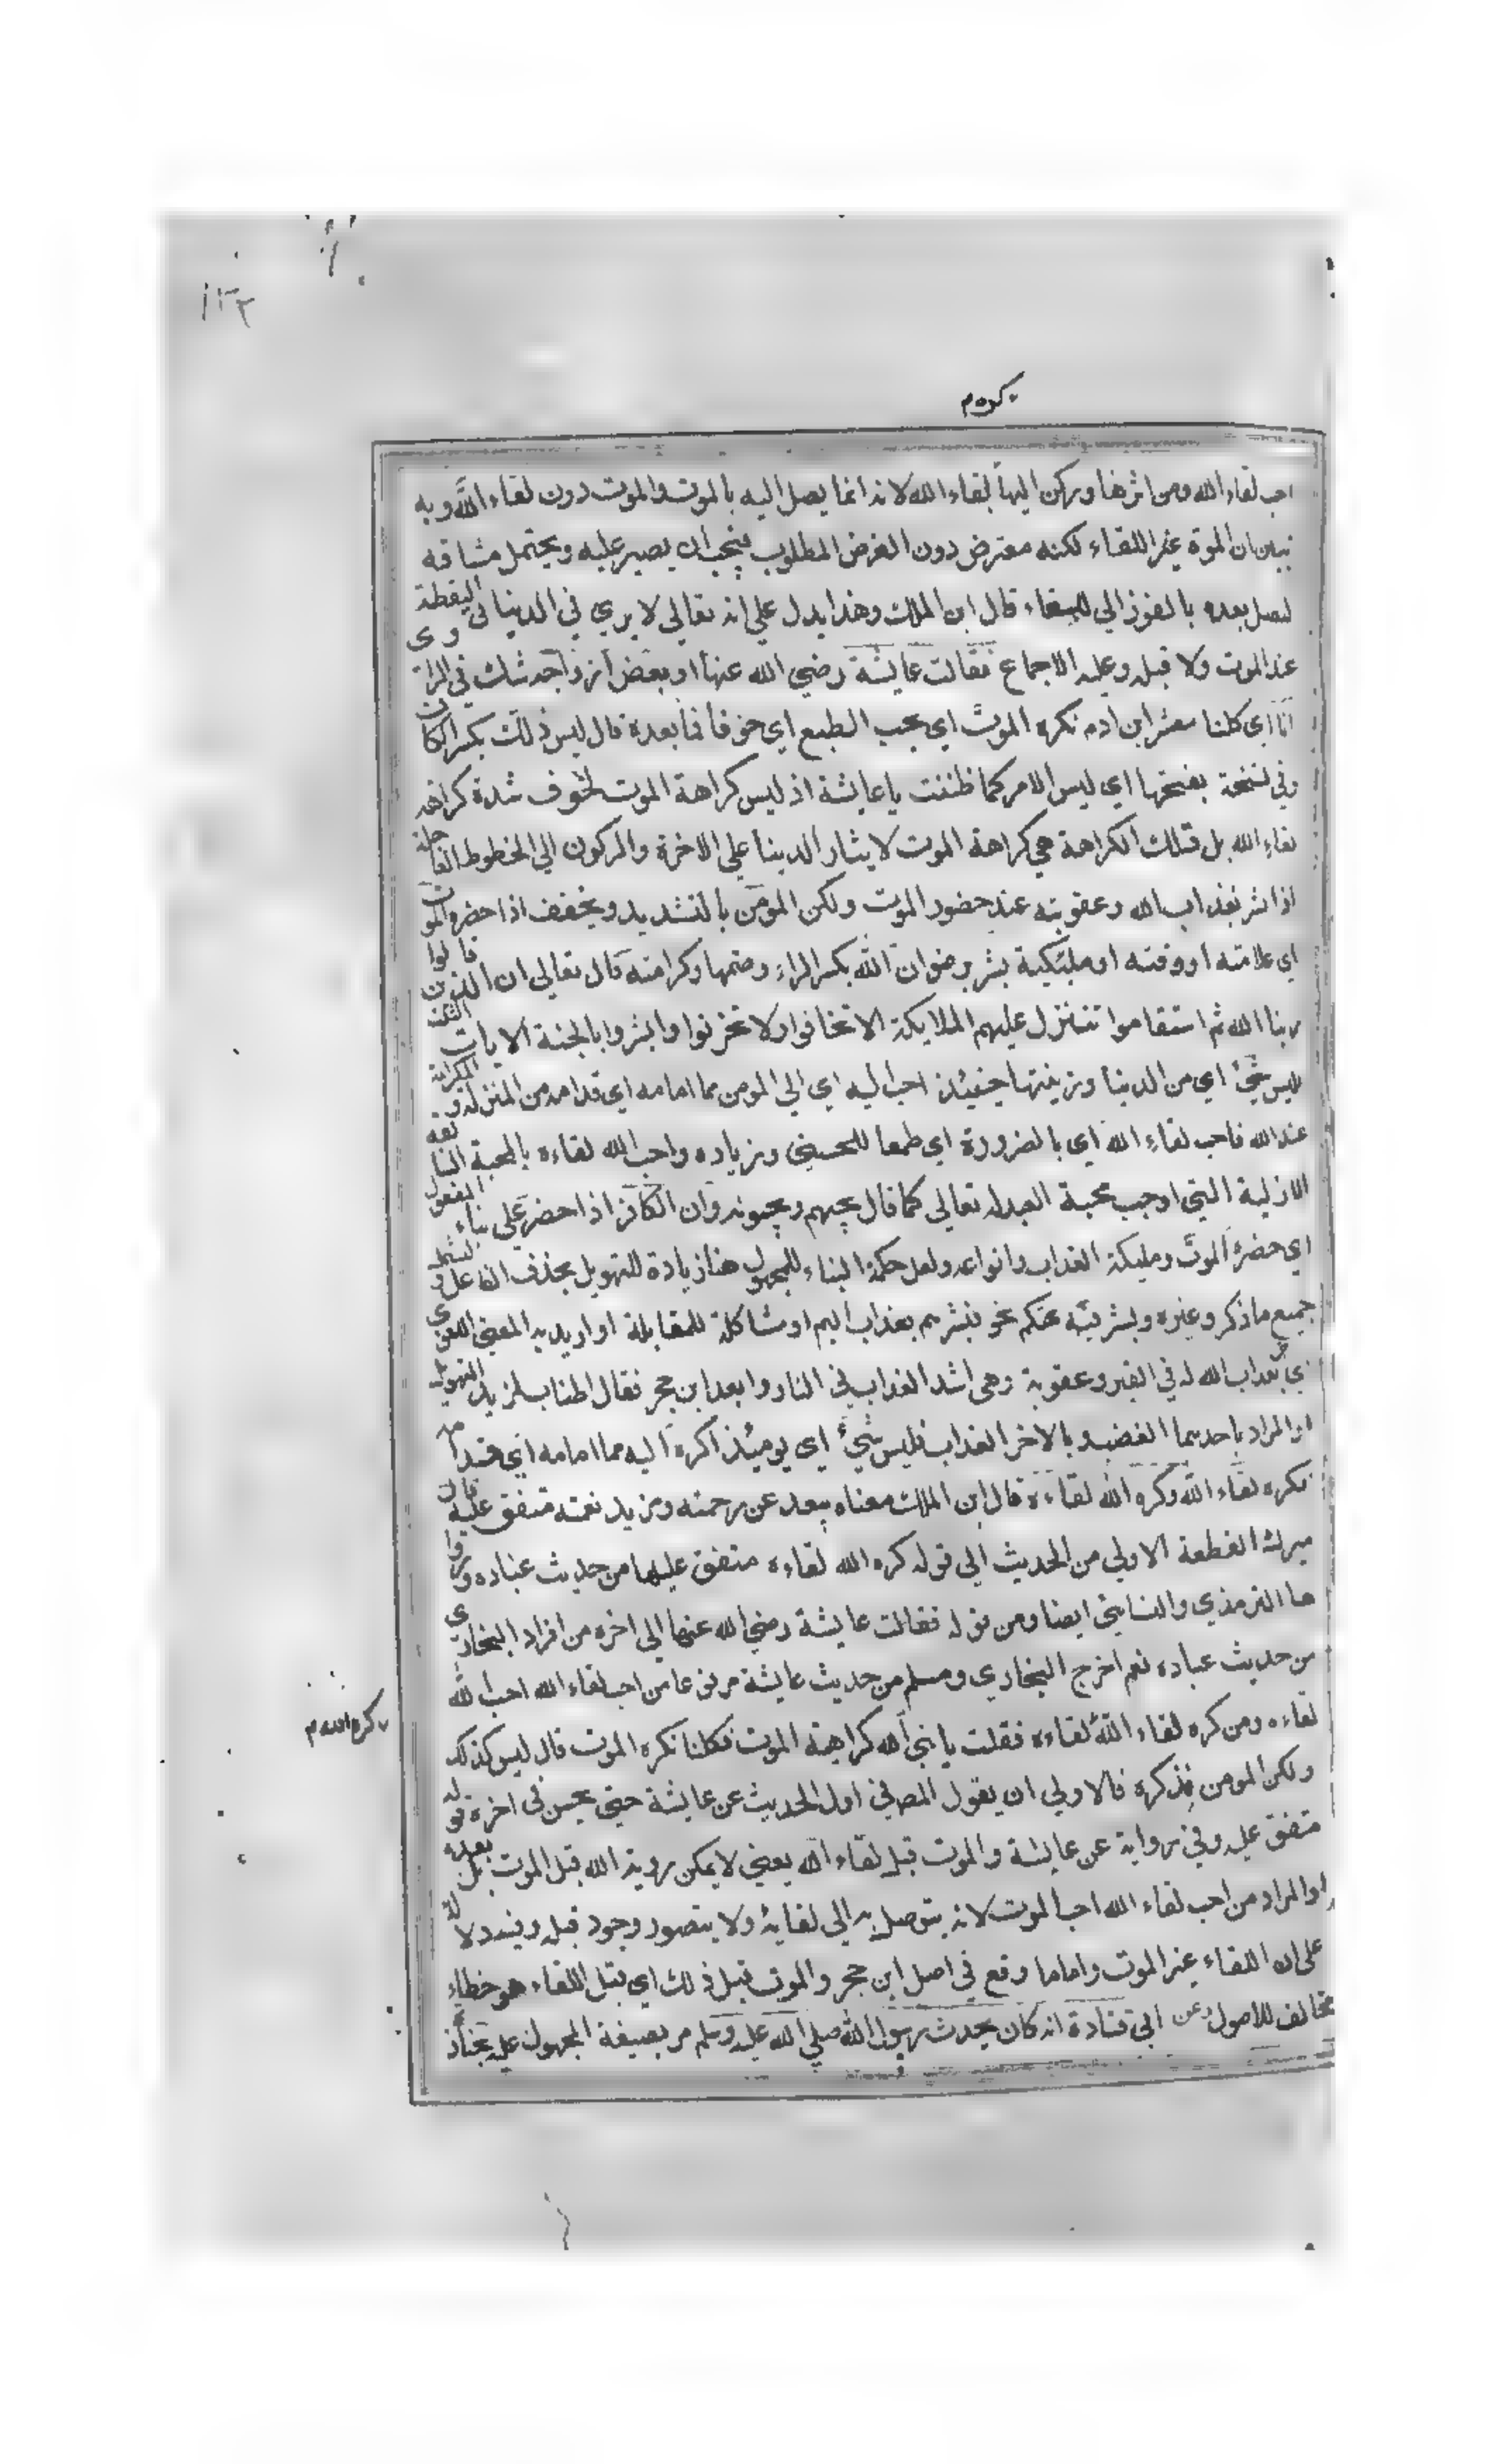 ١٣٢
كره م
احب لقاء الله ومن اثرها وركن اليها لقاء الله لانه انما يصل اليه بالموت والموت دون لقاء الله وبه
تبين ان الموة غير اللقاء لكنه معترض دون الغرض المطلوب فيجب ان يصبر عليه ويحتمل مشاقه
ليصل بعده بالفوز الي اللقاء قال ابن الملك وهذا يدل علي انه تعالي لا يري في الدنيا في اليقظة
عند الموت ولا قبله وعليه الاجماع فقالت عايشة رضي الله عنها او بعض ازواجه شك في الراوي
انا اي كلنا معشر ابن ادم نكره الموت اي بحب الطبع اي خوفا فما بعده قال ليس ذلك بكسر الكاف
وفي نسخة بفتحها اي ليس الامر كما ظننت يا عايشة اذ ليس كراهة الموت لخوف شدة كراهة
لقاء الله بل فتلك الكراهة هي كراهة الموت لايثار الدنيا علي الاخرة والركون الي الحظوظ العاجلة
اذا بشر بعذاب الله وعقوبته عند حضور الموت ولكن المومن بالتشديد ويخفف اذا حضره الموت
اي علامته او وقته او مليكية بشر برضوان الله بكسر الراء وضمها وكرامته قال تعالي ان الذين قالوا
ربنا الله ثم استقاموا تتنزل عليهم الملايكة الا تخافوا ولا تحزنوا وابشروا بالجنة الايات الثلث
فليس شيئ اي من الدنيا وزينتها حينئذ احب اليه اي الي المومن مما امامه اي قدامه من المنزلة والكرامة
عند الله فاحب لقاء الله اي بالضرورة اي طمعا للحسني وزياده واحب الله لقاءه بالمحبة السابقة
الازلية التي اوجب محبة العبد له تعالي كما قال يحبهم ويحبونه وان الكافر اذا حضر علي بناء المفعول
اي حضره الموت ومليكة العذاب وانواعه ولعل حكمة البناء للمجهول هنا زيادة للتهويل بحذف الفاعل ليشمل
جميع ما ذكر وغيره وبشر فيه تحكم نحو فبشرهم بعذاب اليم او مشاكلة للمقابلة او اريد به المعني اللغوي
اي بعذاب الله له في القبر وعقوبة وهي اشد العذاب في النار وابعد ابن حجر فقال اطناب لمزيد التهويل
او المراد باحدهما الغضب وبالاخر العذاب فليس شيئ اي يومئذ اكره اليه مما امامه اي قدامه
فكره لقاء الله وكره الله لقاءه قال ابن الملك معناه يبعد عن رحمته ومزيد نعمته متفق عليه قال
ميرك القطعة الاولي من الحديث الي قوله كره الله لقاءه متفق عليها من حديث عباده وروا
ها الترمذي والنسايئ ايضا ومن قوله فقالت عايشة رضي الله عنها الي اخره من افراد البخاري
من حديث عباده نعم اخرج البخاري ومسلم من حديث عايشة مرفوعا من احب لقاء الله احب الله
لقاءه ومن كره لقاء الله لقاءه فقلت يا نبي الله كراهية الموت فكلنا نكره الموت قال ليس كذلك
كره الله م
ولكن المومن فذكره فالاولي ان يقول المص في اول الحديث عن عايشة حتي يحسن في اخره قوله
متفق عليه وفي رواية عن عايشة والموت قبل لقاء الله يعني لا يمكن روية الله قبل الموت بل بعده
او المراد من احب لقاء الله احب الموت لانه يتوصل به الي لقايه ولا يتصور وجوده قبله وفيه دلالة
علي ان اللقاء غير الموت واما ما وقع في اصل ابن حجر والموت قبل ذلك اي قبل اللقاء هو خطاء
مخالف للاصول وعن ابي قتادة انه كان يحدث رسول الله صلي الله عليه وسلم مر بصيغة المجهول عليه بجنازة